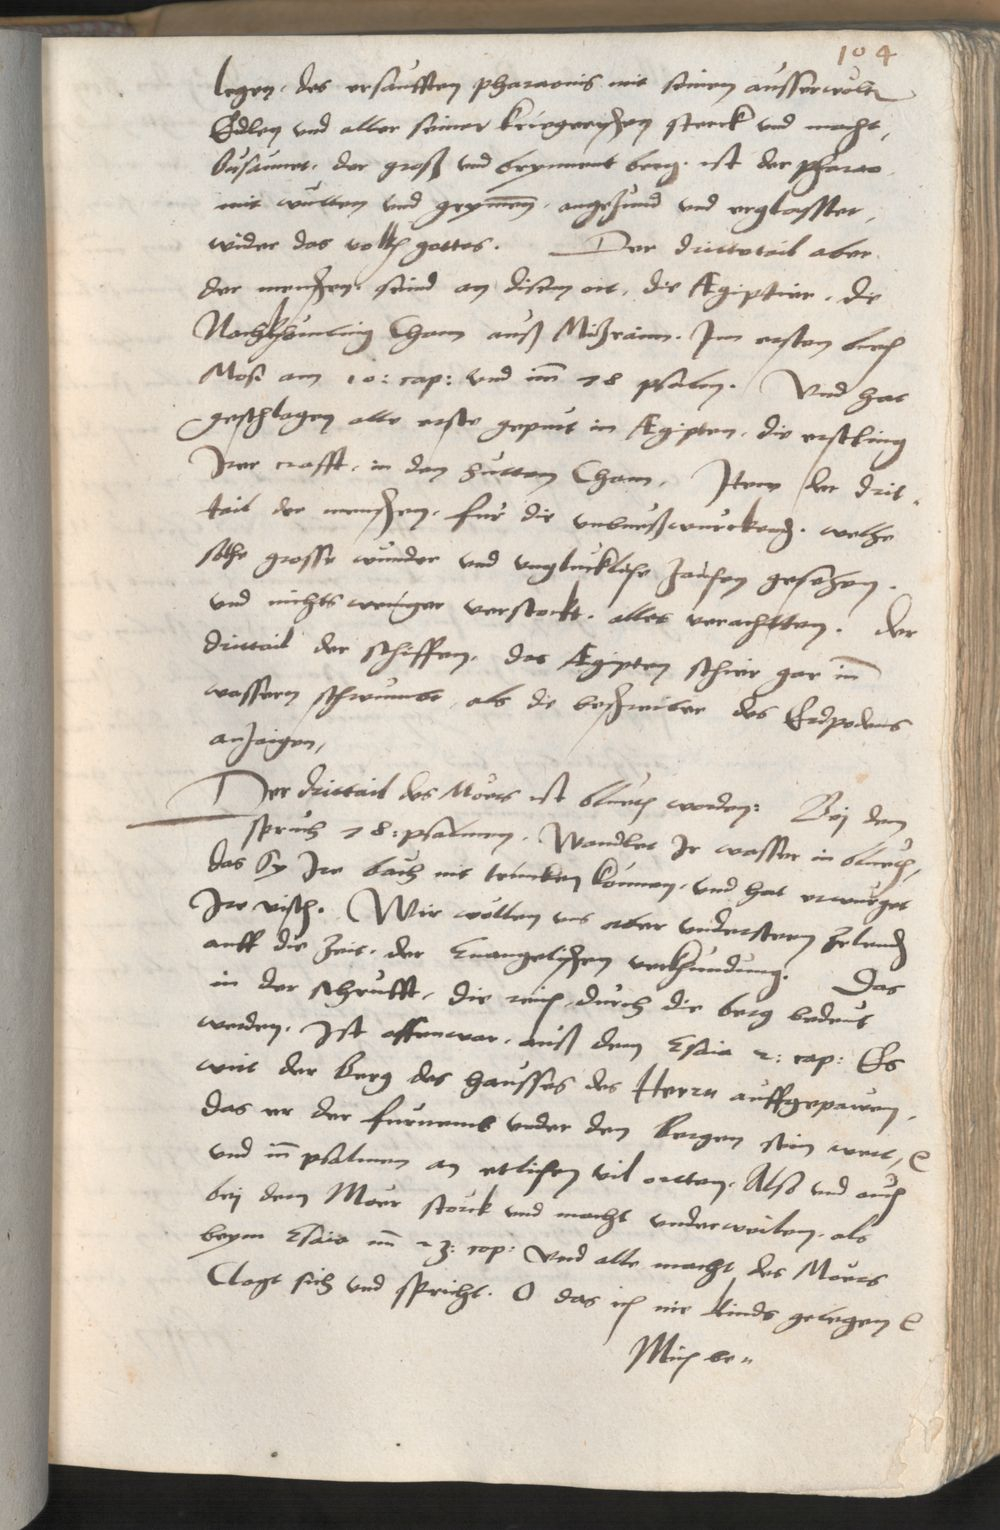 104
legen. des ersaufften pharaonis mit seinen ausserwölt
Edlen und aller seiner kriegerischen sterck und macht,
busaunet. der groß und brynnent berg. ist der pharao
mit wutten und grymen. angezund und erglastet,
wider das volkh gottes. Der drittetail aber
der menschen. seind an disem ort, die Ægiptier. die
Nachkhumling Cham auß Mißraim. Im ersten buch
Mosi am 10: cap: und im 78 psalm. Und hat
geschlagen alle erste gepurt in Ægipten. die erstling
Irer crafft. in den hutten Cham. Item der drit
tail der menschen. fur die unbueßwurckend. welche
solhe grosse wunder und unglucklhafe zaichen gesehen.
und nichts weniger verstockt. alles verachtten. der
drittail der schiffen. das Ægipten schier gar in
wassern schwumbt, als die beschreiber des Erdpodens
anzaigen,
Der drittail des Mörs ist bluet worden: Bej dem
spruch 78: psalmen. Wandlet Ir wasser in bluet,
das Sy Ire bäch nit trincken konnen. und hat erwurget
Ire visch. Wir wöllen uns aber understeen zelend
auff die zeit. der Euangelischen verkhundung. Das
in der schrufft. die reich durch die berg bedeut
werden. Ist offenwar. auß dem Esaia 2: cap: Es
wirt der berg des hausses des Herrn auffgepawen,
das er der furnemb under den bergen sein wert, &
und im psalmen an etlichen vil ortten. Also und auch
bej dem Mör sterck und macht underweilen. als
beym Esaia im 23: cap: Und alle macht des Mörs
Clagt sich und spricht. O das ich nie kinds gelegen &
Mich be=